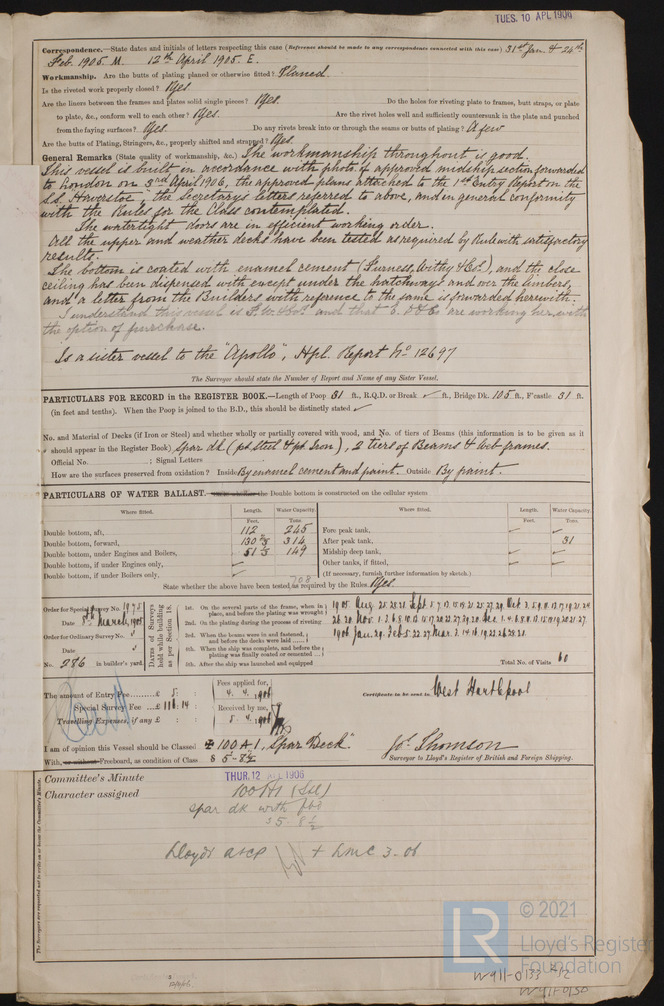 TUES. 10 APL 1906
Correspondence.—State dates and initials of letters respecting this case (Reference should be made to any correspondence connected with this case) 31st Jan. & 24th
Feb. 1905. M. 12th April 1905. E.
Workmanship. Are the butts of plating planed or otherwise fitted? Planed.
Is the riveted work properly closed? Yes.
Are the liners between the frames and plates solid single pieces? Yes. Do the holes for riveting plate to frames, butt straps, or plate
to plate, &c., conform well to each other? Yes. Are the rivet holes well and sufficiently countersunk in the plate and punched
from the faying surfaces? Yes. Do any rivets break into or through the seams or butts of plating? A few
Are the butts of Plating, Stringers, &c., properly shifted and strapped? Yes.
General Remarks (State quality of workmanship, &c.) The workmanship throughout is good.
This vessel is built in accordance with photo. of approved midship section forwarded
to London on 3rd April 1906, the approved plans attached to the 1st Entry Report on the
S.S. "Haverstoe", the Secretary's letters referred to above, and in general conformity
with the Rules for the Class contemplated.
The watertight doors are in efficient working order.
All the upper and weather decks have been tested as required by Rule with satisfactory
results.
The bottom is coated with enamel cement (Furness, Withy & Co.), and the close
ceiling has been dispensed with except under the hatchways and over the limbers,
and a letter from the Builders with reference to the same is forwarded herewith.
I understand this vessel is F. W. & Co's and that are working her with
the option of purchase.
Is a sister vessel to the "Apollo", Hpl. Report No 12697
The Surveyor should state the Number of Report and Name of any Sister Vessel.
PARTICULARS FOR RECORD in the REGISTER BOOK.—Length of Poop 31 ft., R.Q.D. or Break ft., Bridge Dk. 105 ft., F'castle 31 ft.
(in feet and tenths). When the Poop is joined to the B.D., this should be distinctly stated
No. and Material of Decks (if Iron or Steel) and whether wholly or partially covered with wood, and No. of tiers of Beams (this information is to be given as it
should appear in the Register Book) Spar dk (pt. Steel & pt. Iron), 2 tiers of Beams & Web frames.
Official No. ; Signal Letters
How are the surfaces preserved from oxidation? Inside By enamel cement and paint. Outside By paint.
PARTICULARS OF WATER BALLAST.— the Double bottom is constructed on the cellular system
Where fitted. Length. Water Capacity. Where fitted. Length. Water Capacity.
Feet. Tons. Feet. Tons.
Double bottom, aft, 112 245 Fore peak tank,
Double bottom, forward, 130 314 After peak tank, 31
Double bottom, under Engines and Boilers, 51 149 Midship deep tank,
Double bottom, if under Engines only, Other tanks, if fitted,
Double bottom, if under Boilers only, 708 (If necessary, furnish further information by sketch.)
State whether the above have been tested as required by the Rules. Yes.
Order for Special Survey No. 1971
Date 8th March, 1905
Order for Ordinary Survey No.
Date
No. 286 in builder's yard.
Dates of Surveys held while building as per Section 18.
1st. On the several parts of the frame, when in place, and before the plating was wrought
2nd. On the plating during the process of riveting
3rd. When the beams were in and fastened, and before the decks were laid
4th. When the ship was complete, and before the plating was finally coated or cemented
5th. After the ship was launched and equipped
Total No. of Visits 60
The amount of Entry Fee £ 5: Fees applied for, 4. 4. 1906
Special Survey Fee £ 116:14: Received by me, 5. 4. 1906
Travelling Expenses, if any £ : :
Certificate to be sent to West Hartlepool
I am of opinion this Vessel should be Classed 100A1, "Spar Deck"
With, or without Freeboard, as condition of Class 5-8½
Jos. Thomson
Surveyor to Lloyd's Register of British and Foreign Shipping.
Committee's Minute THUR. 12 APL 1906
Character assigned 100A1 (Stl)
spar dk with fbd
5-8½
Lloyds a & c p + LMC 3.06
The Surveyors are requested not to write on or below the Committee's Minute.
© 2021
LR
Lloyd's Register
Foundation
W911-0133 2/2
W911-0130